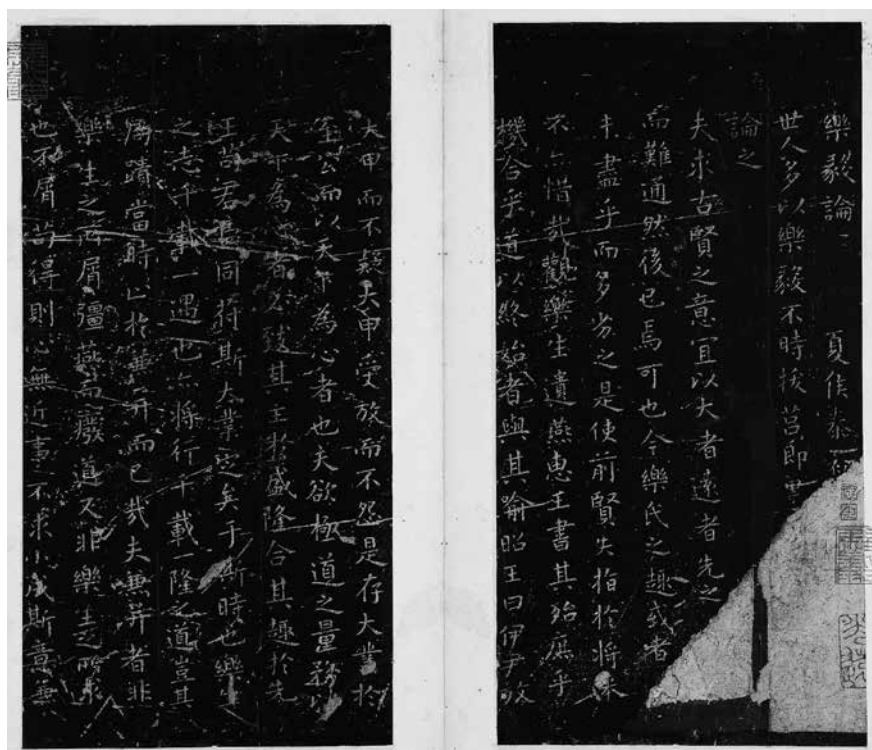 樂毅論 夏侯泰
世人多以樂毅不時拔莒即墨
論之
夫求古賢之意宜以大者遠者先之
而難通然後已焉可也今樂氏之趣或者
未盡乎而多劣之是使前賢失指於將來
不亦惜哉觀樂生遺燕惠王書其殆庶乎
機合乎道以終始者與其喻昭王曰伊尹放
大甲而不疑大甲受放而不怨是存大業於
至公而以天下為心者也夫欲極道之量務以
天下為心者必致其主於盛隆合其趣於先
王苟君臣同符斯大業定矣于斯時也樂生
之志千載一遇也亦將行千載一隆之道豈其
局蹟當時止於兼并而已哉夫兼并者非
樂生之所屑彊燕而癈道又非樂生之所求
也不屑苟得則心無近事不求小成斯意兼